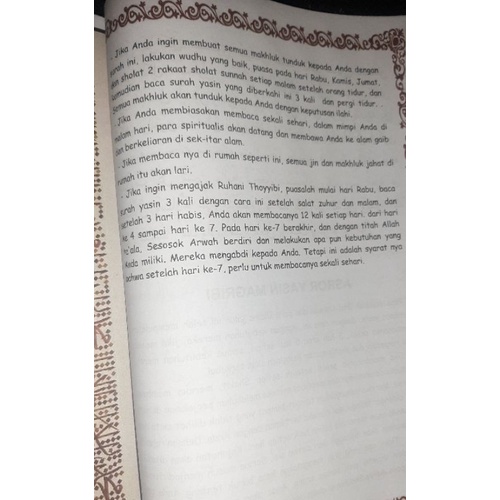 - Jika Anda ingin membuat semua makhluk tunduk kepada Anda dengan
surah ini, lakukan wudhu yang baik, puasa pada hari Rabu, Kamis, Jumat,
dan sholat 2 rakaat shalat sunnah setiap malam setelah orang tidur, dan
kemudian baca surah yasin yang diberkahi ini 3 kali dan pergi tidur. .
Semua makhluk akan tunduk kepada Anda dengan keputusan ilahi.
- Jika Anda membiasakan membaca sekali sehari, dalam mimpi Anda di
malam hari, para spiritualis akan datang dan membawa Anda ke alam gaib
dan berkeliaran di sek-itar alam.
- Jika membaca nya di rumah seperti ini, semua jin dan makhluk jahat di
rumah itu akan lari.
- Jika ingin mengajak Ruhani Thoyyibi, puasalah mulai hari Rabu, baca
surah yasin 3 kali dengan cara ini setelah salat zuhur dan malam, dan
setelah 3 hari habis, Anda akan membacanya 12 kali setiap hari, dari hari
ke 4 sampai hari ke 7. Pada hari ke-7 berakhir, dan dengan titah Allah
Ta'ala, Sesosok Arwah berdiri dan melakukan apa pun kebutuhan yang
Anda miliki. Mereka mengabdi kepada Anda. Tetapi ini adalah syarat nya
bahwa setelah hari ke-7, perlu untuk membacanya sekali sehari.